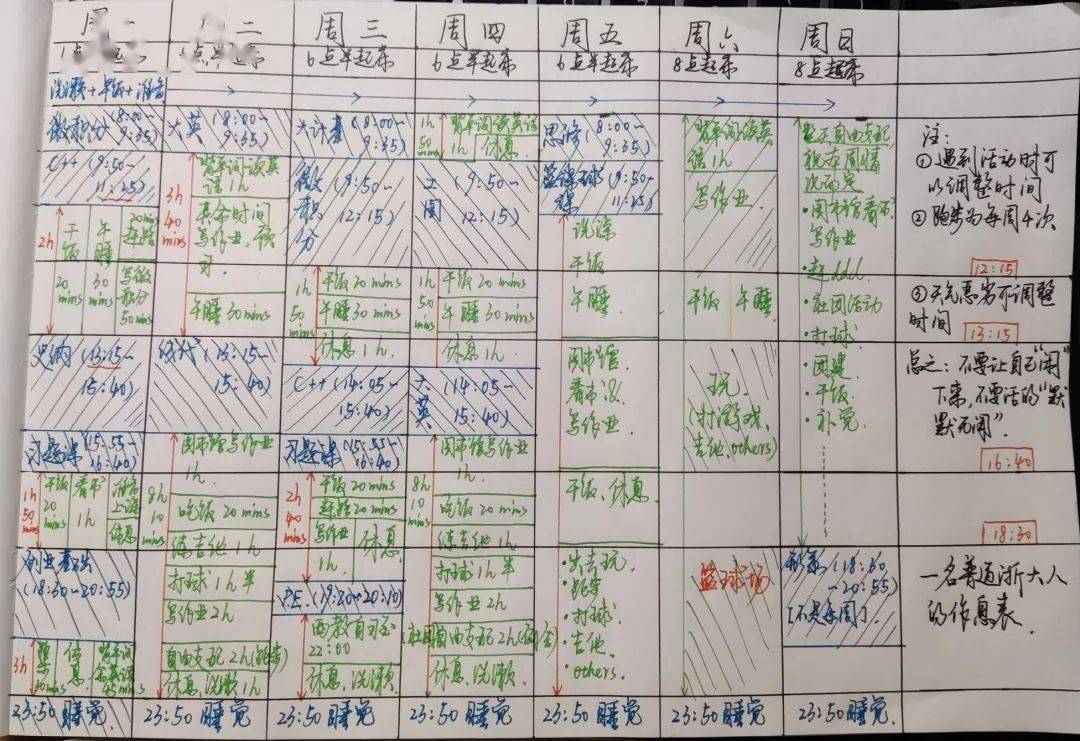 周一
二
周三
周四
周五
周六
周日
点半起床
6点半起床
6点半起床
6点半起床
8点起床
8点起床
洗漱+早饭+准备
微积分(8:00~
9:35)
C++(9:50~
11:25)
2h
干饭
20
mins
午睡
30
mins
20mins
写微
积分
50mins
史纲(13:15~
15:40)
习题课(15:55~
16:40)
1h
50
mins
干饭
20
mins
看书
1h
准备
上课
休息
创业基础
(18:30~20:55)
3h
跑步
休息
背单词
45mins
23:50 睡觉
大英(8:00~
9:35)
3h
40
mins
背单词读英
语1h
其余时间
写作业,
午睡30mins
线代(13:15~
15:40)
8h
10
mins
图书馆写作业
1h.
吃饭20mins
练吉他1h
打球1h半
写作业2h
自由支配2h(跑步)
休息、洗漱1h
23:50 睡觉
大计基(8:00~
9:35)
微积分
(9:50~
12:15)
1h
50
mins
干饭20mins
午睡30mins
休息1h.
C++(14:05~
15:40)
习题课(15:55~
16:40)
2h
40
mins
干饭20mins
写作业
1h.
休息
P.E.(19:20~20:10)
西教自习至
22:00
休息、洗漱
23:50 睡觉
1h
50
mins
背单词读英语
休息
工图
(9:50~
12:15)
1h
50
mins
干饭20mins
午睡30mins
休息1h.
大英
(14:05~
15:40)
8h
10
mins
图书馆写作业
1h.
吃饭20mins
练吉他1h
打球1h半
写作业2h
自由支配2h
休息、洗漱1h
23:50 睡觉
思修(8:00~
9:35)
篮球课(9:50~
11:25)
洗澡
干饭
午睡
图书馆
看书&
写作业
干饭、休息
·出去玩.
·跑步
·打球.
·吉他.
·others.
23:50 睡觉
背单词读英
语1h
写作业
干饭 午睡
玩
(打游戏、
吉他、others)
篮球场
23:50 睡觉
整天自由支配
视本周情
况而定
·图书馆看书
写作业
·赶ddl
·社团活动
·打球.
·团建
·干饭.
·补觉.
形策(18:30
~20:55)
[不是每周]
23:50 睡觉.
注:
①遇到活动时可
以调整时间
②跑步为每周4次
12:15
③天气恶劣可调整
时间
13:15
总之:不要让自己“闲”
下来,不要活的“默
默无闻”.
16:40
18:30
一名普通浙大人
的作息表.